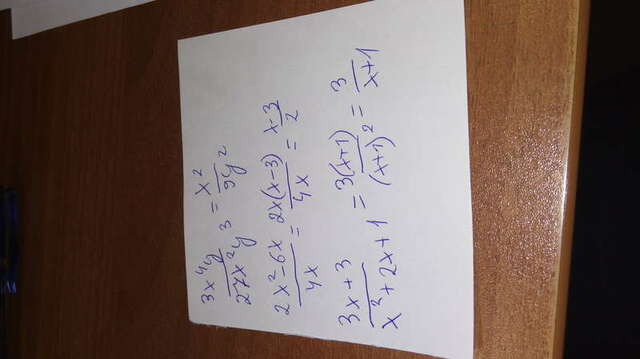 3x⁴y / 27x²y³ = x² / 9y²
2x²-6x / 4x = 2x(x-3) / 4x = x-3 / 2
3x+3 / x²+2x+1 = 3(x+1) / (x+1)² = 3 / x+1